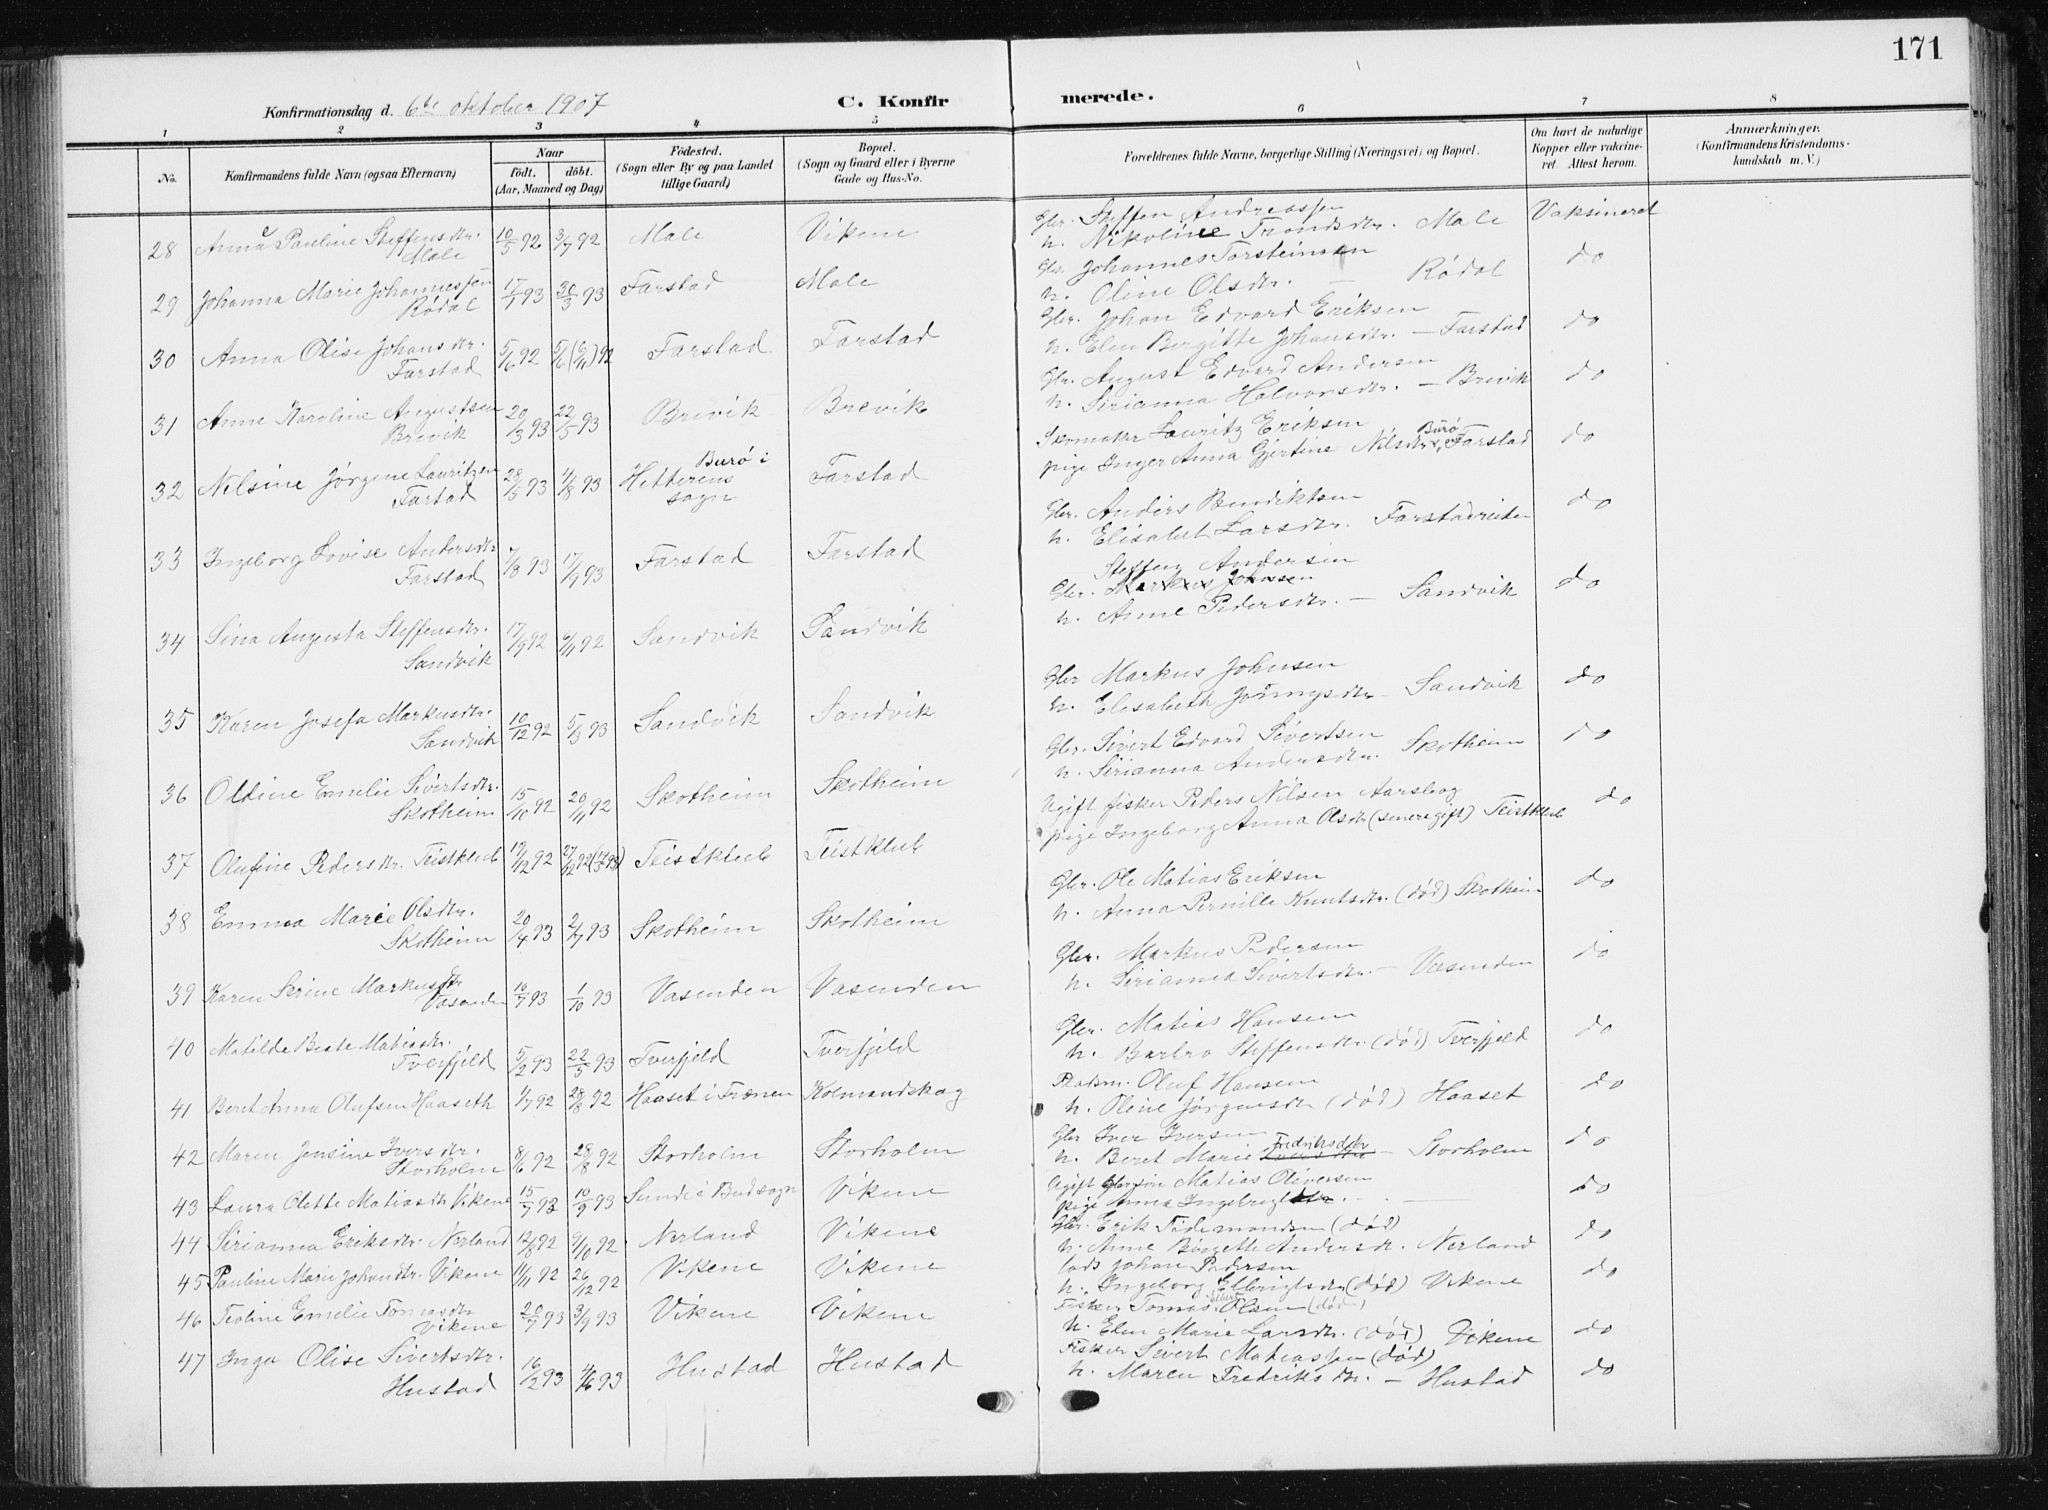 171
Konfirmationsdag d. 6te oktober 1907
C. Konfirmerede.
1 2 3 4 5 6 7 8
No. Konfirmandens fulde Navn (ogsaa Efternavn) Naar födt. döbt. (Aar, Maaned og Dag) Födested. (Sogn eller By og paa Landet tillige Gaard) Bopæl. (Sogn og Gaard eller i Byerne Gade og Hus-No. Forældrenes fulde Navne, borgerlige Stilling (Næringsvei) og Bopæl. Om havt de naturlige Kopper eller vakcineret. Attest herom. Anmærkninger. (Konfirmandens Kristendomskundskab m. V.)
28 Anna Pauline Steffensdtr. Male 10/5 92 3/7 92 Male Vikene Gbr. Steffen Andreassen h. Nikoline Trondsdtr. Male Vaksineret
29 Johanna Marie Johannessen Rødal 17/1 93 30/3 93 Farstad Male Gbr. Johannes Torsteinsen h. Oline Olsdtr. — Rødal do
30 Anna Olise Johansdtr. Farstad 5/6 92 5/6 (6/11) 92 Farstad Farstad Gbr. Johan Edvard Eriksen h. Elen Bergitte Johansdtr. — Farstad do
31 Anne Karoline Augustsen Brevik 20/3 93 22/5 93 Brevik Brevik Gbr. August Edvard Andersen h. Sirianna Halvorsdtr. — Brevik do
32 Nilsine Jørgine Lauritzen Farstad 28/5 93 4/8 93 Burø i Hitterens sogn Farstad Skomaker Lauritz Eriksen pige Inger Anna Gjertine Nilsdtr. Burø Farstad do
33 Ingeborg Lovise Andersdtr Farstad 7/8 93 17/9 93 Farstad Farstad Gbr. Anders Bendiktsen h. Elisabet Larsdtr. Farstadreiten do
34 Sina Augusta Steffensdtr. Sandvik 17/9 92 6/11 92 Sandvik Sandvik Gbr. Steffen Andersen Markus Johnsen h. Anne Pedersdtr. — Sandvik do
35 Karen Josefa Markusdtr. Sandvik 10/12 92 5/3 93 Sandvik Sandvik Gbr Markus Johnsen h. Elisabeth — Sandvik do
36 Oldine Emelie Sivertsdtr. Skotheim 15/10 92 20/11 92 Skotheim Skotheim Gbr. Sivert Edvard Sivertsen h. Sirianna Andersdtr. Skotheim do
37 Olufine Pedersdtr. Teistklub 19/12 92 27/12 92 Teistklub Teistklub Ugift fisker Peders Nilsen Aarsbog pige Ingeborg Anna Olsdtr (senere gift) Teistklub do
38 Emma Marie Olsdtr. Skotheim 20/4 93 2/7 93 Skotheim Skotheim Gbr. Ole Matias Eriksen h. Anna Pernille Knutsdtr. (død) Skotheim do
39 Karen Serine Markusdtr Vasenden 16/7 93 1/10 93 Vasenden Vasenden Gbr. Markus Pedersen h. Sirianna Sivertsdtr. — Vasenden do
40 Matilde Beate Matiasdtr. Tverfjeld 5/2 93 22/5 93 Tverfjeld Tverfjeld Gbr. Matias Hansen h. Barbro Steffensdtr. (død) Tverfjeld do
41 Beret Anna Olufsen Haaseth 1/7 92 28/8 92 Haaset i Frænen Kolmandskog Pladsm. Oluf Hansen h. Oline Jørgensdtr (død) Haaset do
42 Maren Jensine Iversdtr. Storholm 8/6 92 28/8 92 Storholm Storholm Gbr Iver Iversen h. Beret Marie Fredriksdtr — Storholm do
43 Laura Olette Matiasdtr Vikene 15/7 93 10/9 93 Sunde i Budsogn Vikene Ugift Gbrsøn Matias Oliversen pige Anna Ingebrigtsdtr. — do
44 Sirianna Eriksdtr. Nerland 12/8 92 9/10 92 Nerland Vikene Gbr. Erik Tidemandsen (død) h. Anne Børgette Andersdtr. Nerland do
45 Pauline Marie Johansdtr. Vikene 11/11 92 26/12 92 Vikene Vikene Lods Johan Pedersen h. Ingeborg Elbrigtsdtr (død) Vikene do
46 Teoline Emelie Tomasdtr Vikene 20/7 93 3/9 93 Vikene Vikene Fisker Tomas Olsen (død) h. Elen Marie Larsdtr. (død) Vikene do
47 Inga Olise Sivertsdtr. Hustad 16/2 93 4/6 93 Hustad Hustad Fisker Sivert Matiassen (død) h. Maren Fredriksdtr. — Hustad do